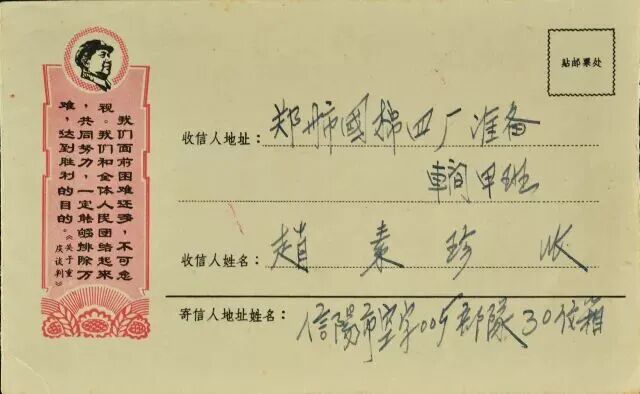 我们面前困难还多,不可忽
视。我们和全体人民团结起来
,共同努力,一定能够排除万
难,达到胜利的目的。
《关于重
庆谈判》
贴邮票处
收信人地址: 郑州市國棉四厂准备
車间甲班
收信人姓名: 趙素珍 收
寄信人地址姓名: 信陽市空字 部隊30信箱